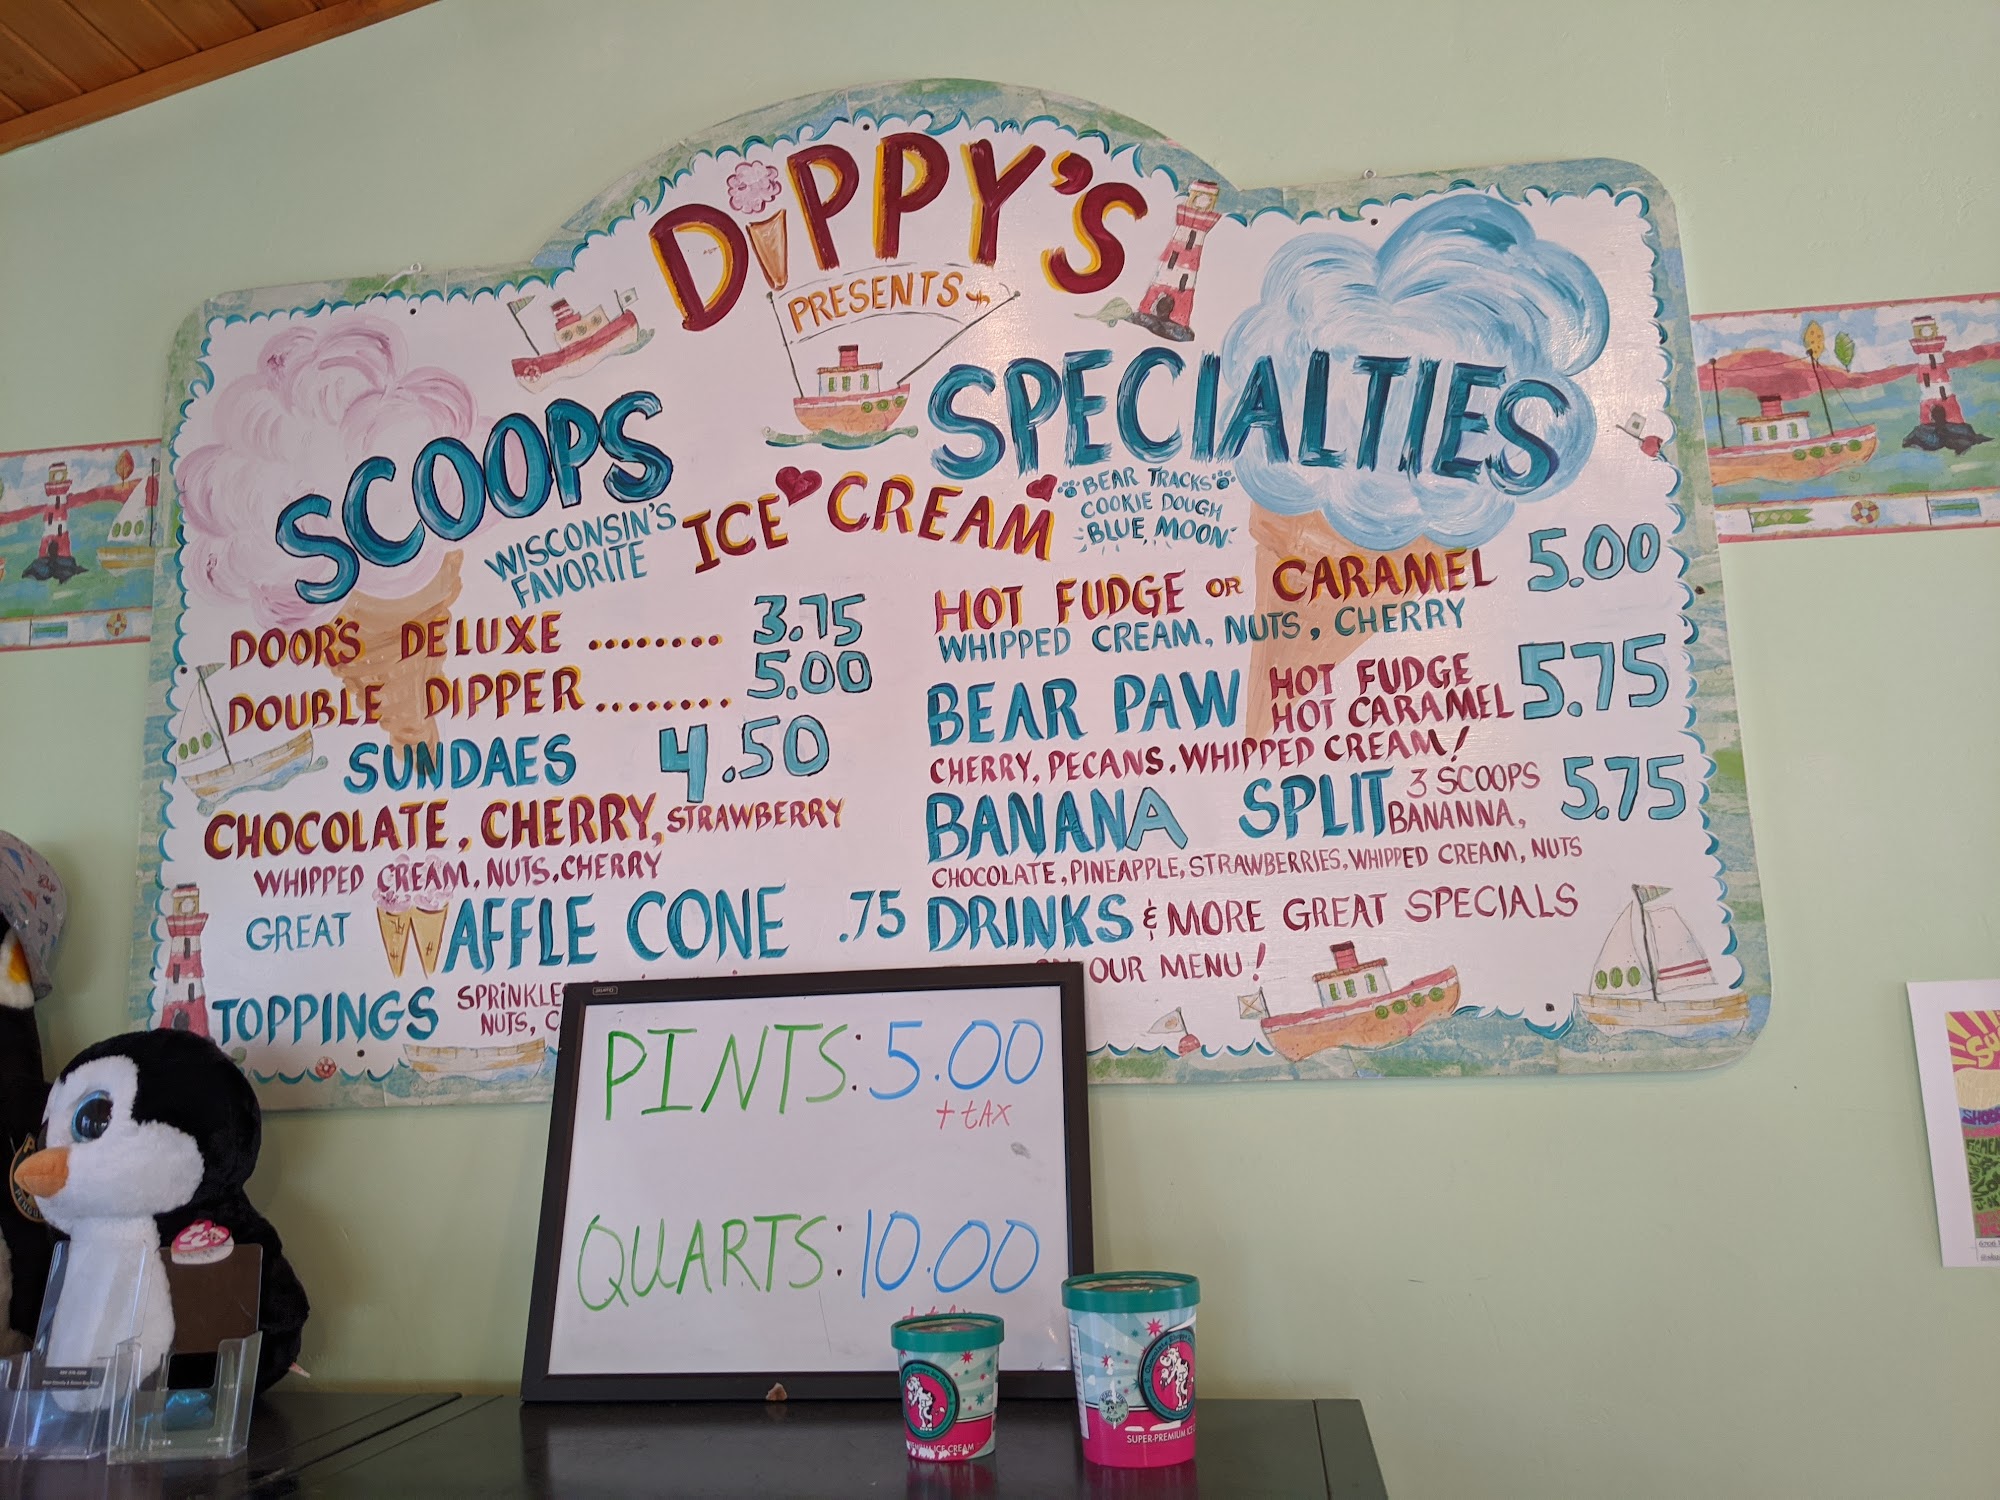 DIPPY'S
PRESENTS
SCOOPS
WISCONSIN'S
FAVORITE
ICE CREAM
DOOR'S DELUXE ........ 3.75
DOUBLE DIPPER ........ 5.00
SUNDAES 4.50
CHOCOLATE, CHERRY, STRAWBERRY
WHIPPED CREAM, NUTS, CHERRY
GREAT WAFFLE CONE .75
TOPPINGS
NUTS,
SPECIALTIES
BEAR TRACKS
COOKIE DOUGH
BLUE MOON
HOT FUDGE OR CARAMEL 5.00
WHIPPED CREAM, NUTS, CHERRY
BEAR PAW HOT FUDGE
HOT CARAMEL 5.75
CHERRY, PECANS, WHIPPED CREAM!
BANANA SPLIT 3 SCOOPS
BANANNA, 5.75
CHOCOLATE, PINEAPPLE, STRAWBERRIES, WHIPPED CREAM, NUTS
DRINKS & MORE GREAT SPECIALS
OUR MENU!
PINTS: 5.00
+ tAX
QUARTS: 10.00
ICE CREAM
SUPER-PREMIUM